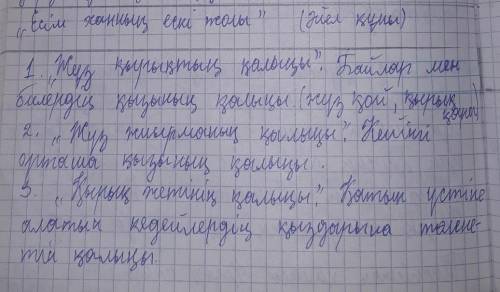 „Есім ханның ескі жолы” (әйел құны)
1. „Жүз қырықтың қалыңы”. Байлар мен
билердің қызының қалыңы (жүз қой, қырық
2. „Жүз жиырманың қалыңы”.
орташа қызының қалыңы.
3. „Қырық жетінің қалыңы”. Қатын үстіне
алатын кедейлердің қыздарына төлене-
тін қалыңы.